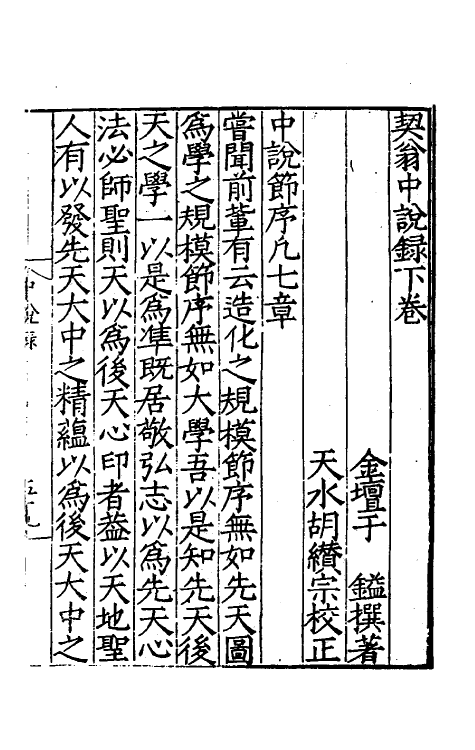 契翁中說録下卷
金壇于　鎰撰著
天水胡纘宗校正
中說節序凡七章
嘗聞前軰有云造化之規模節序無如先天圖
為學之規模節序無如大學吾以是知先天後
天之學一以是為凖既居敬弘志以為先天心
法必師聖則天以為後天心印者葢以天地聖
人有以發先天大中之精蘊以為後天大中之
中說録